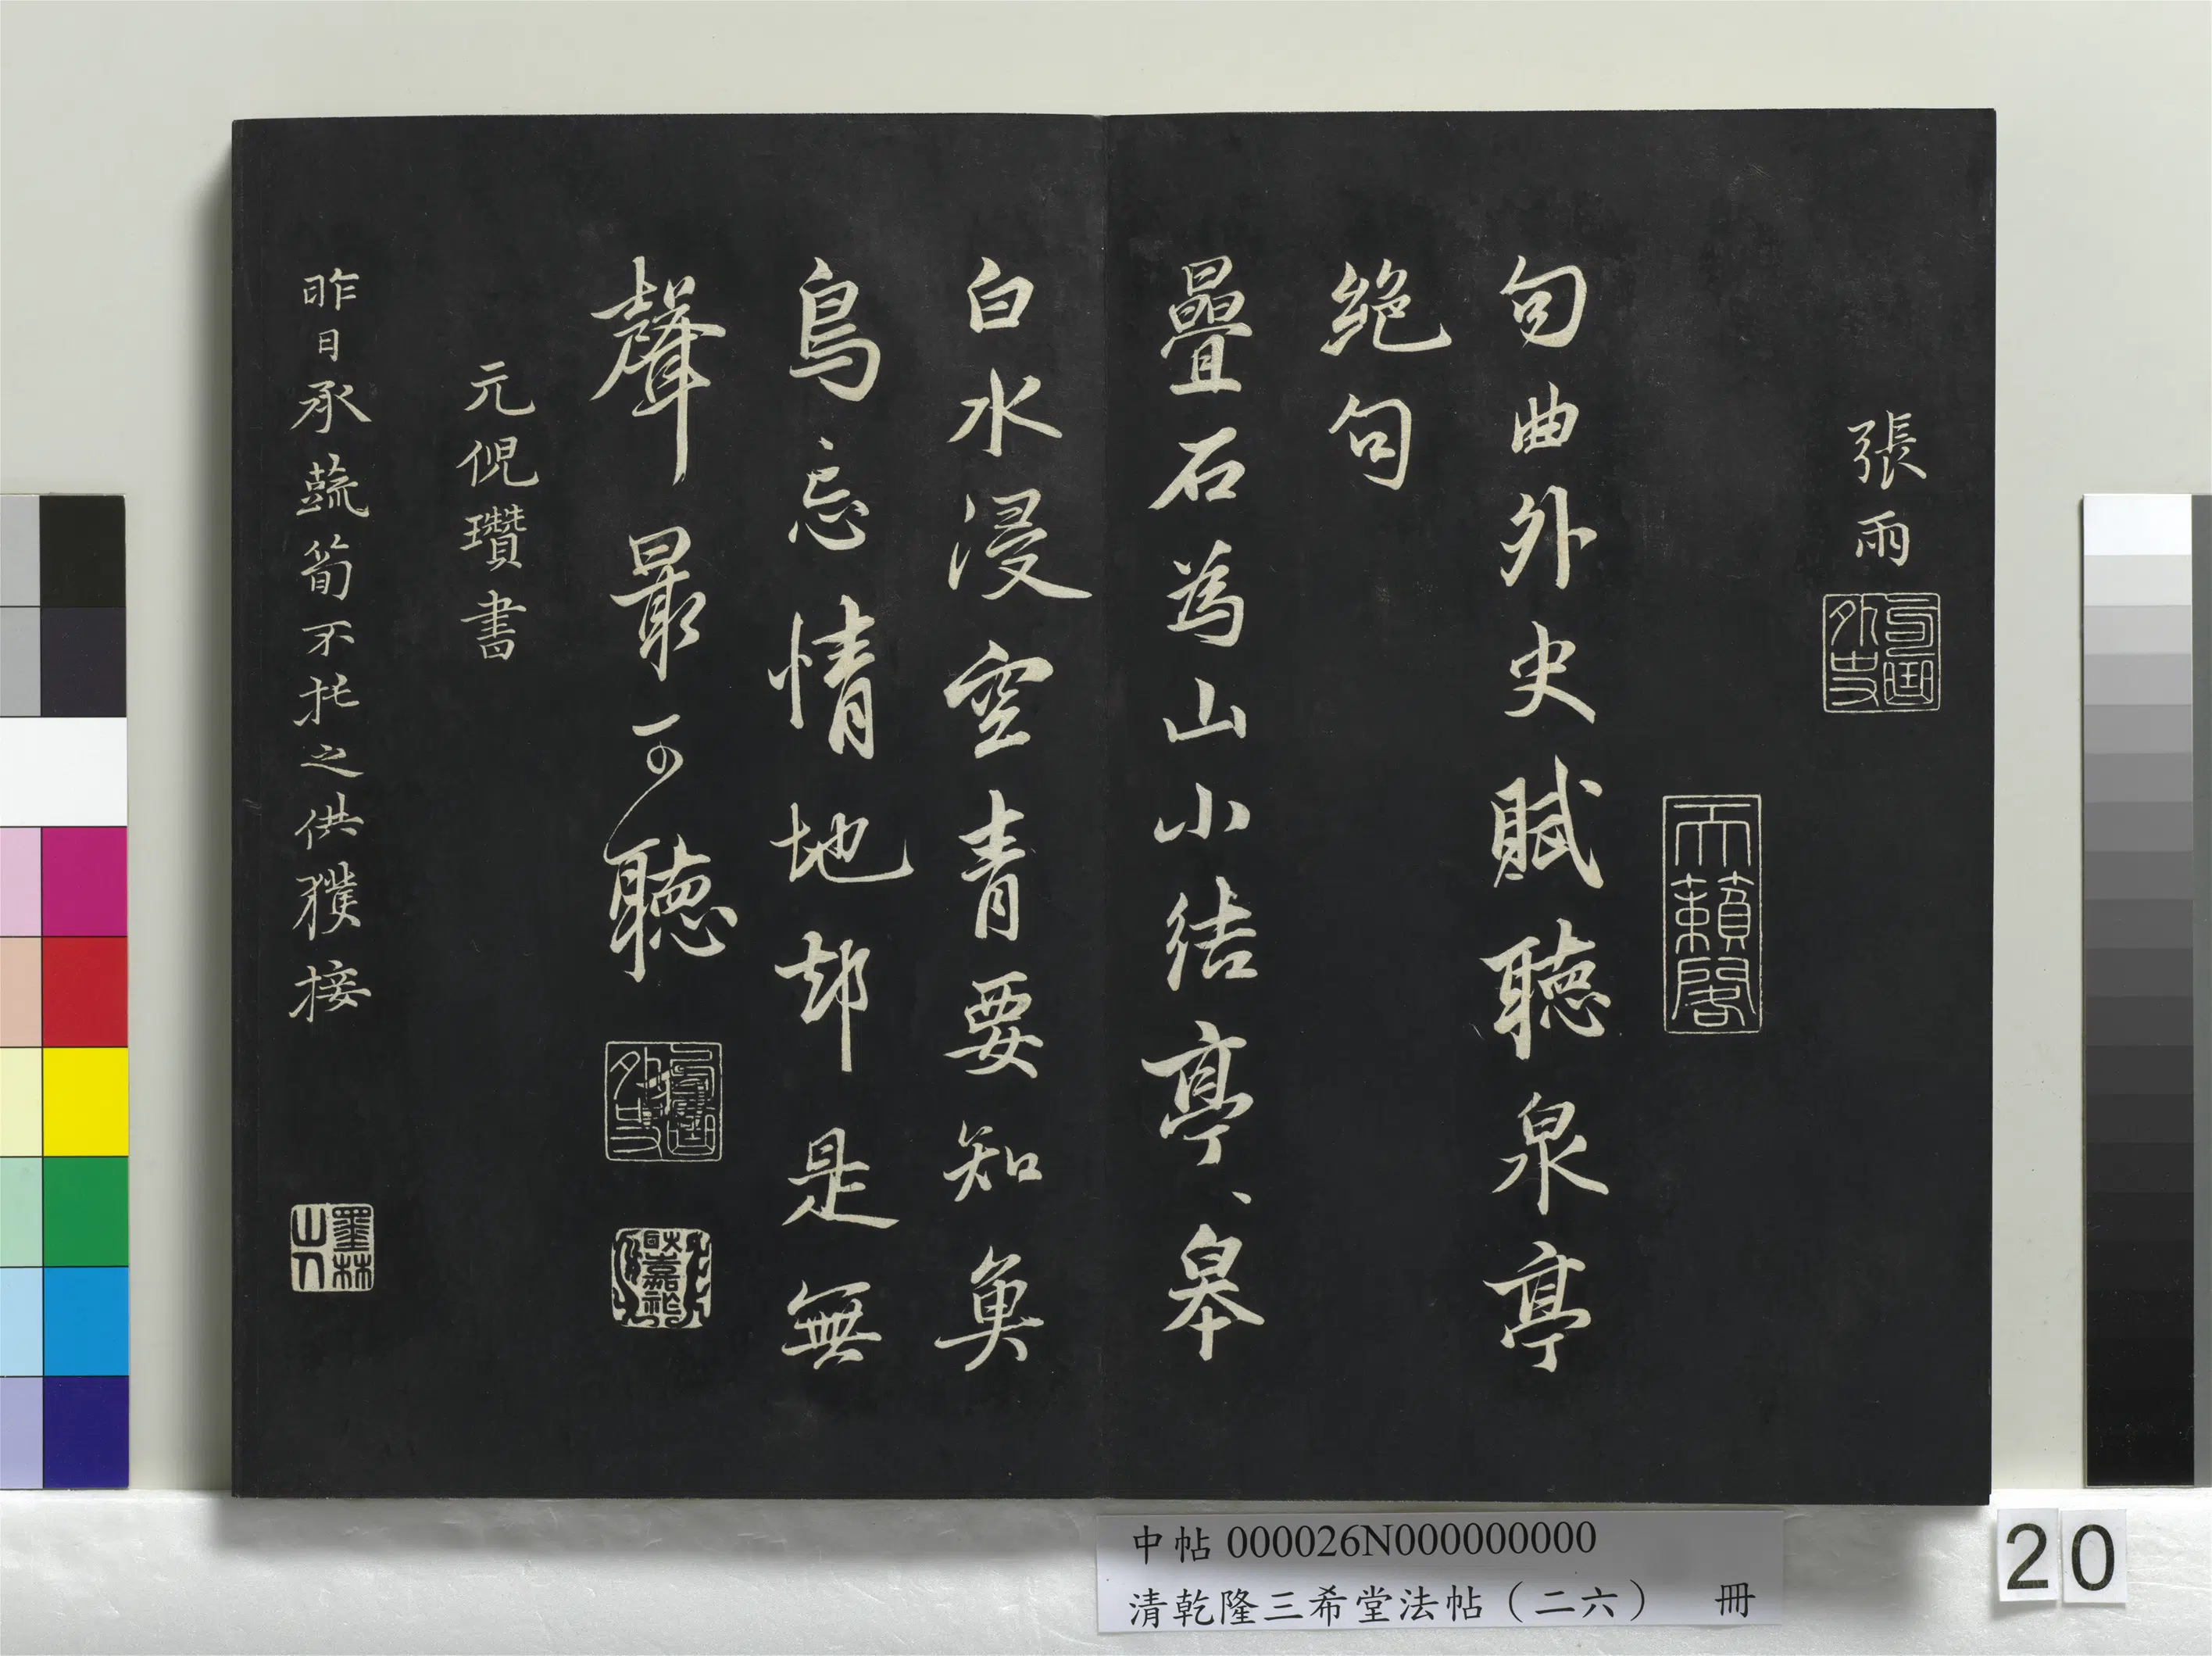 張雨
句曲外史
天籟閣
句曲外史賦聽泉亭
絕句
疊石為山小結亭、皋
白水浸空青要知魚
鳥忘情地却是無
聲最可聽
句曲外史
元倪瓚書
昨日承蔬筍不托之供獲接
墨林山人
中帖 000026N000000000
清乾隆三希堂法帖（二六） 冊
20